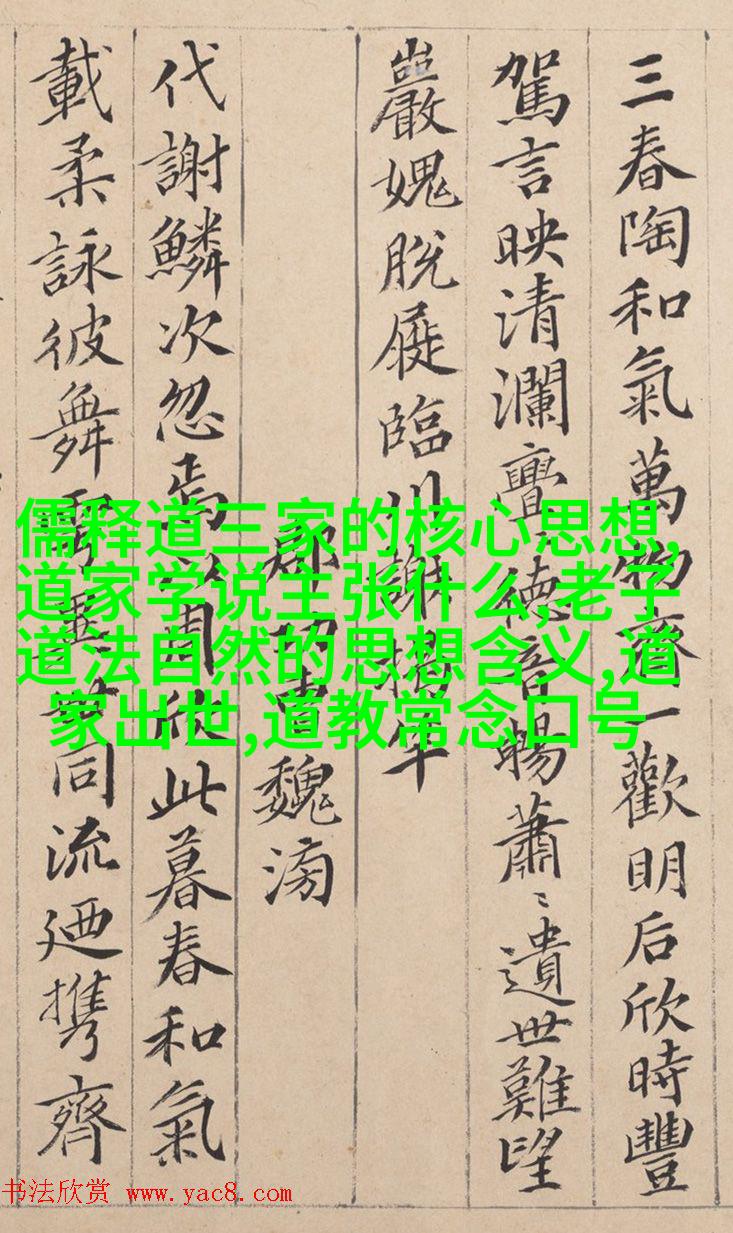 三春陶和氣萬物齊一歡明后欣時豐
駕言映清瀾亹〻德音暢蕭〻遺世難望
巖愧脫屣臨川謝揭竿
郡功曹魏滂
代謝鱗次忽焉以周欣此暮春和氣
載柔詠彼舞雩異世同流迺携齊
儒释道三家的核心思想,
道家学说主张什么,老子
道法自然的思想含义,道
家出世,道教常念口号
书法欣赏 www.yac8.com